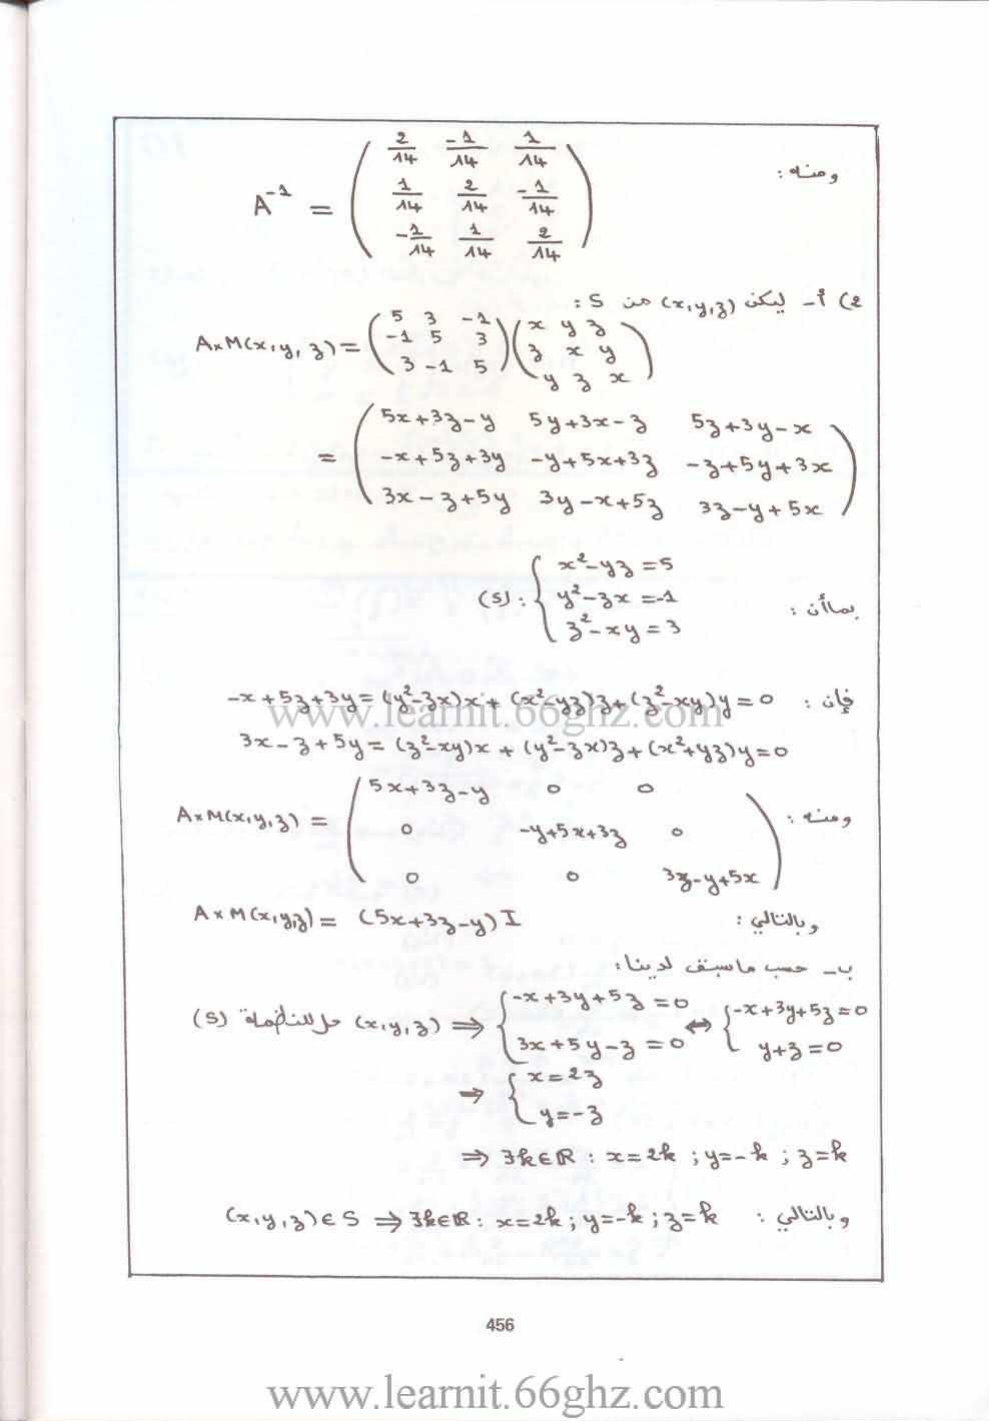 ومنه : A⁻¹ = ( 2/14 -1/14 1/14
1/14 2/14 -1/14
-1/14 1/14 2/14 )
2) أ- ليكن (x,y,z) من S :
A×M(x,y,z) = ( 5 3 -1 ) ( x y z )
( -1 5 3 ) ( z x y )
( 3 -1 5 ) ( y z x )
= ( 5x+3z-y 5y+3x-z 5z+3y-x )
( -x+5z+3y -y+5x+3z -z+5y+3x )
( 3x-z+5y 3y-x+5z 3z-y+5x )
بما أن : (S) : { x²-yz=5
y²-zx=-1
z²-xy=3
فإن : -x+5z+3y=(y²-zx)x+(x²-yz)z+(z²-xy)y=0
www.learnit.66ghz.com
3x-z+5y=(z²-xy)x+(y²-zx)z+(x²+yz)y=0
ومنه : A×M(x,y,z) = ( 5x+3z-y 0 0
0 -y+5x+3z 0
0 0 3z-y+5x )
وبالتالي : A×M(x,y,z) = (5x+3z-y)I
ب- حسب ماسبق لدينا :
(x,y,z) حل للنظمة (S) ⇒ { -x+3y+5z=0 ⇔ { -x+3y+5z=0
3x+5y-z=0 y+z=0
⇒ { x=2z
y=-z
⇒ ∃k∈ℝ : x=2k ; y=-k ; z=k
وبالتالي : (x,y,z)∈S ⇒ ∃k∈ℝ : x=2k ; y=-k ; z=k
456
www.learnit.66ghz.com